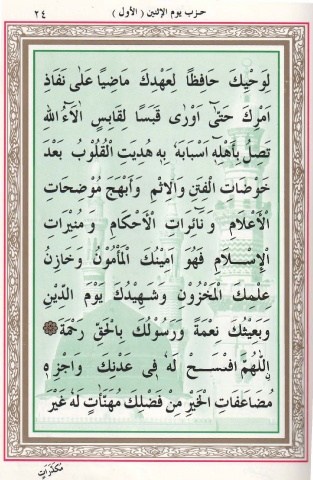 حزب يوم الإثنين (الأول)
٢٤
لِوَحْيِكَ حَافِظًا لِعَهْدِكَ مَاضِيًا عَلَى نَفَاذِ
اَمْرِكَ حَتّٰى اَوْرٰى قَبَسًا لِقَابِسٍ اٰلَاۤءُ اللهِ
تَصِلُ بِاَهْلِهِ اَسْبَابَهُ بِهِ هُدِيَتِ الْقُلُوبُ بَعْدَ
خَوْضَاتِ الْفِتَنِ وَالْاِثْمِ وَاَبْهَجَ مُوضِحَاتِ
الْاَعْلَامِ وَنَاۤئِرَاتِ الْاَحْكَامِ وَمُنِيرَاتِ
الْاِسْلَامِ فَهُوَ اَمِينُكَ الْمَأْمُونُ وَخَازِنُ
عِلْمِكَ الْمَخْزُونِ وَشَهِيدُكَ يَوْمَ الدِّينِ
وَبَعِيثُكَ نِعْمَةً وَرَسُولُكَ بِالْحَقِّ رَحْمَةً
اَللّٰهُمَّ افْسَحْ لَهُ فِى عَدْنِكَ وَاجْزِهِ
مُضَاعَفَاتِ الْخَيْرِ مِنْ فَضْلِكَ مُهَنَّاٰتٍ لَهُ غَيْرَ
مُكَدَّرَاتٍ